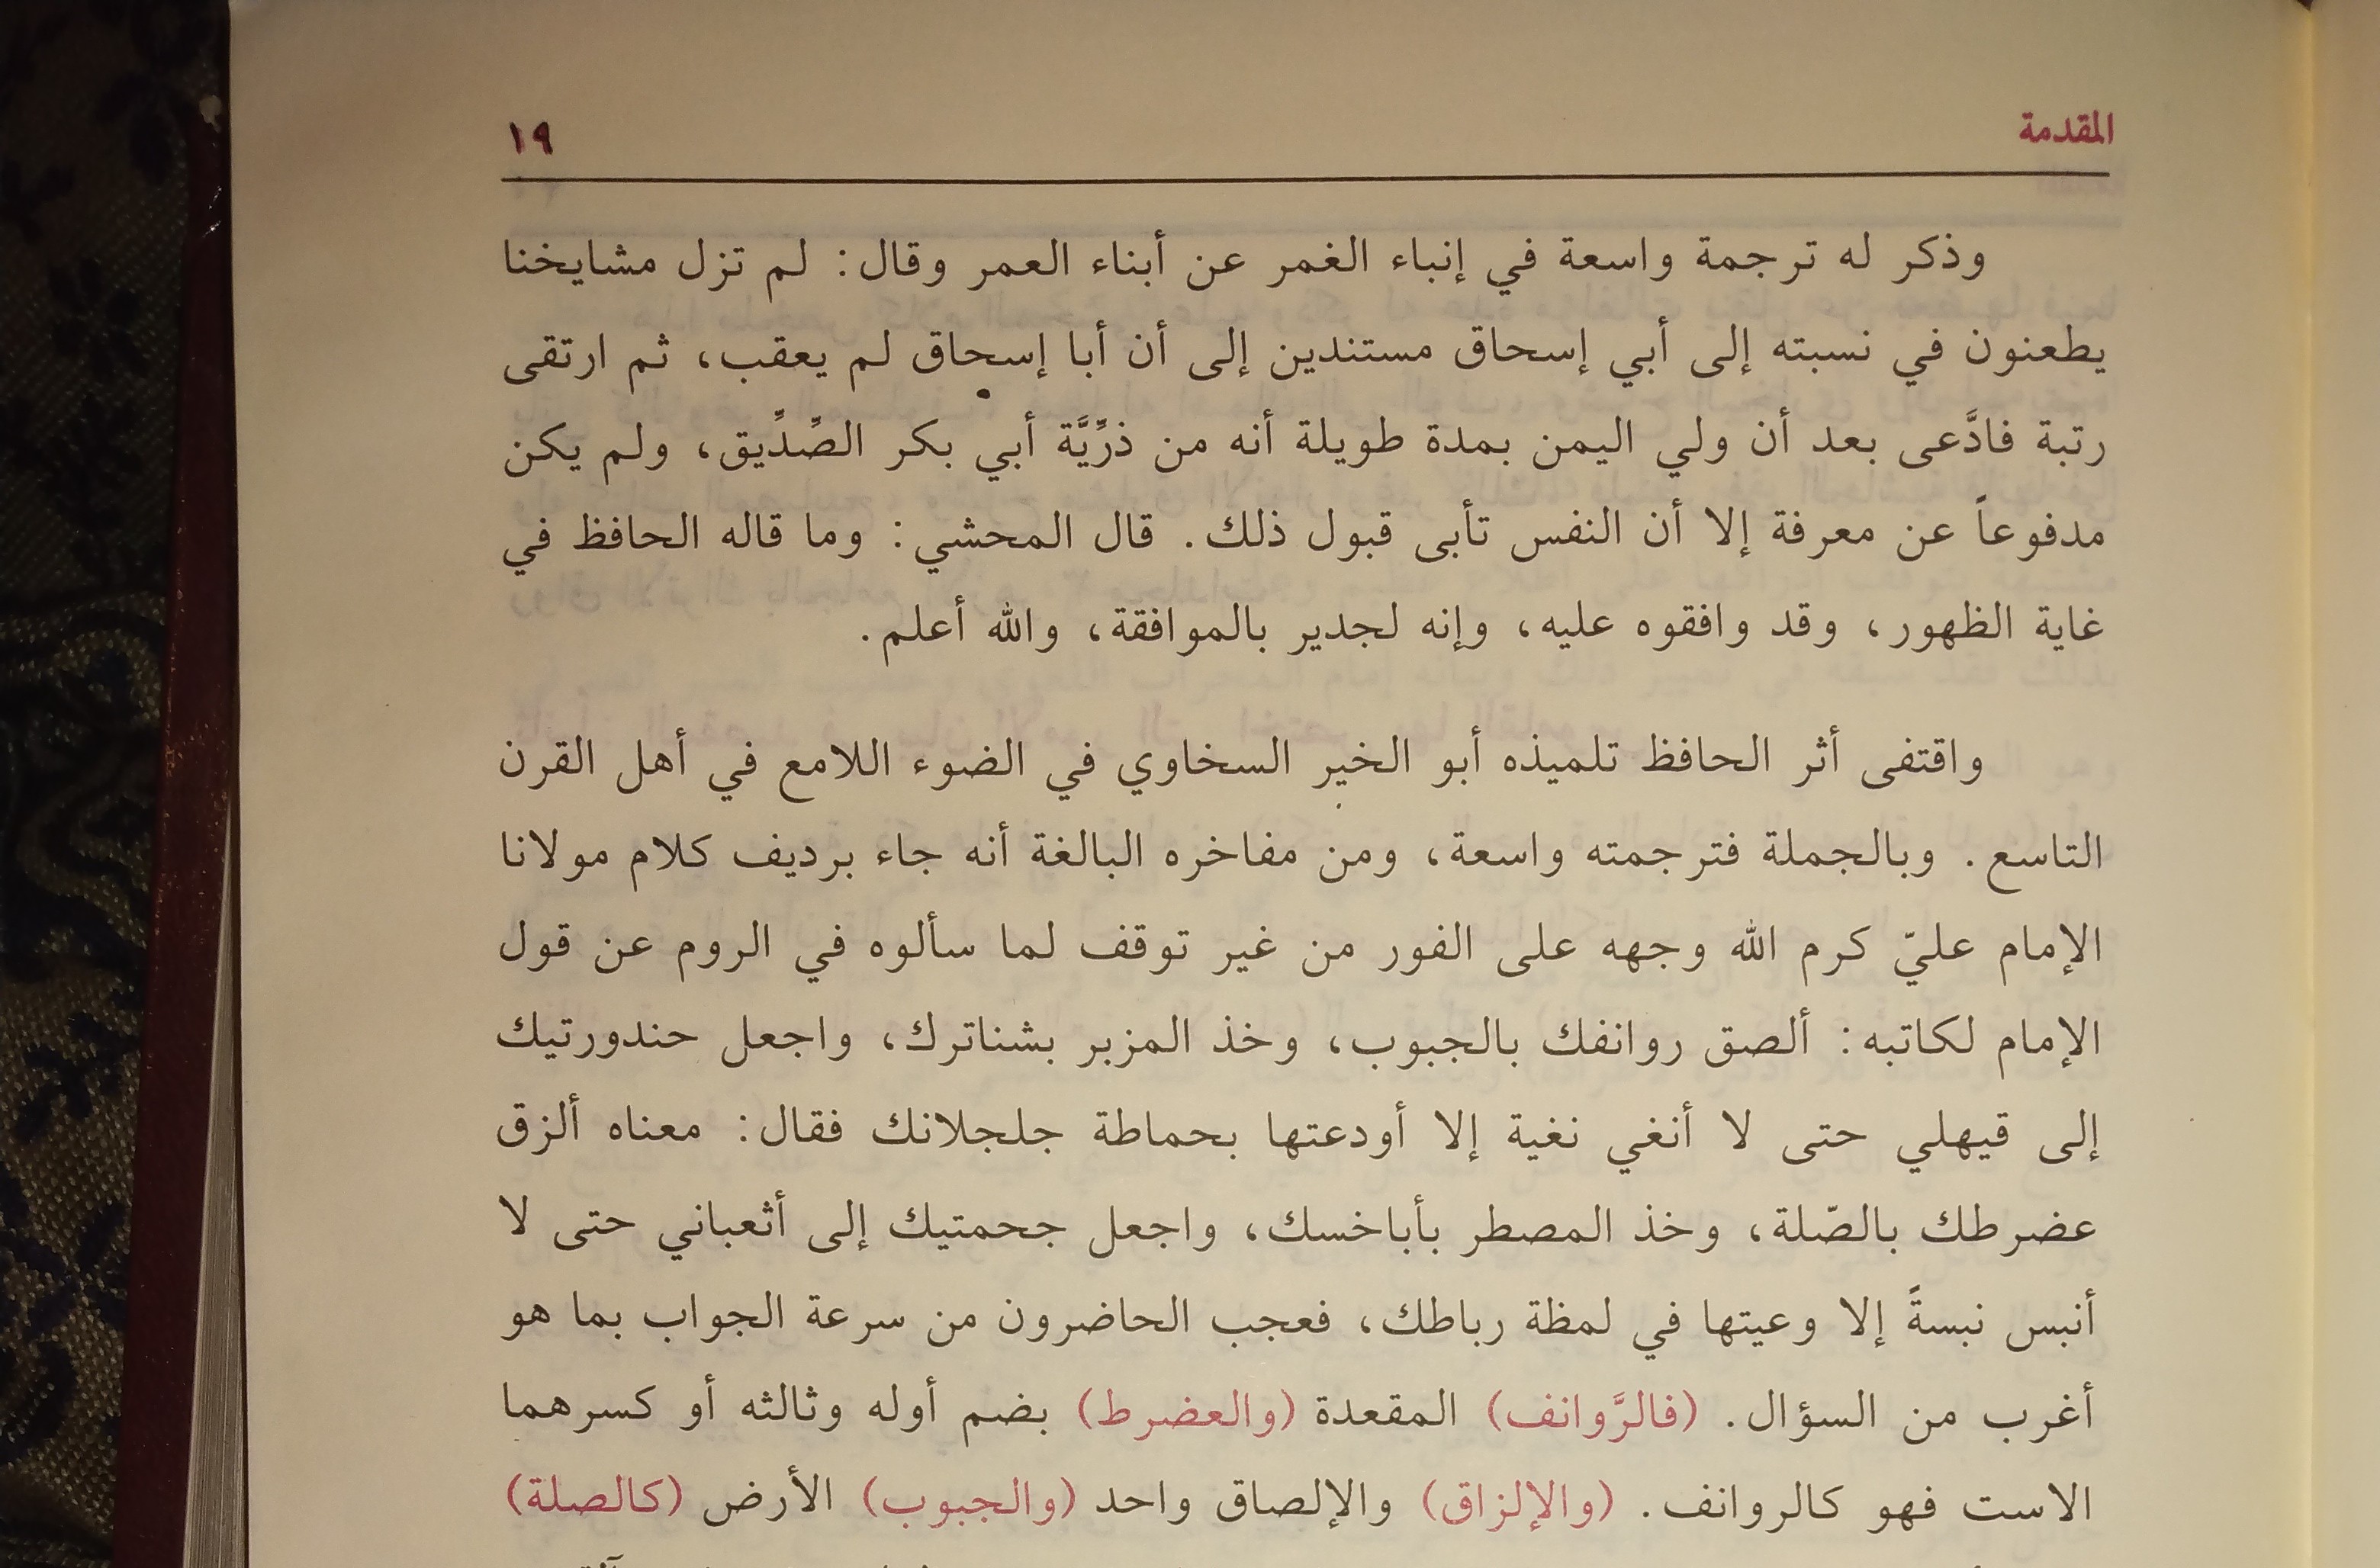 المقدمة ١٩
وذكر له ترجمة واسعة في إنباء الغمر عن أبناء العمر وقال: لم تزل مشايخنا
يطعنون في نسبته إلى أبي إسحاق مستندين إلى أن أبا إسحاق لم يعقب، ثم ارتقى
رتبة فادَّعى بعد أن ولي اليمن بمدة طويلة أنه من ذرِّيَّة أبي بكر الصِّدِّيق، ولم يكن
مدفوعاً عن معرفة إلا أن النفس تأبى قبول ذلك. قال المحشي: وما قاله الحافظ في
غاية الظهور، وقد وافقوه عليه، وإنه لجدير بالموافقة، والله أعلم.
واقتفى أثر الحافظ تلميذه أبو الخير السخاوي في الضوء اللامع في أهل القرن
التاسع. وبالجملة فترجمته واسعة، ومن مفاخره البالغة أنه جاء برديف كلام مولانا
الإمام عليّ كرم الله وجهه على الفور من غير توقف لما سألوه في الروم عن قول
الإمام لكاتبه: ألصق روانفك بالجبوب، وخذ المزبر بشناترك، واجعل حندورتيك
إلى قيهلي حتى لا أنغي نغية إلا أودعتها بحماطة جلجلانك فقال: معناه ألزق
عضرطك بالصّلة، وخذ المصطر بأباخسك، واجعل جحمتيك إلى أثعباني حتى لا
أنبس نبسةً إلا وعيتها في لمظة رباطك، فعجب الحاضرون من سرعة الجواب بما هو
أغرب من السؤال. (فالرَّوانف) المقعدة (والعضرط) بضم أوله وثالثه أو كسرهما
الاست فهو كالروانف. (والإلزاق) والإلصاق واحد (والجبوب) الأرض (كالصلة)